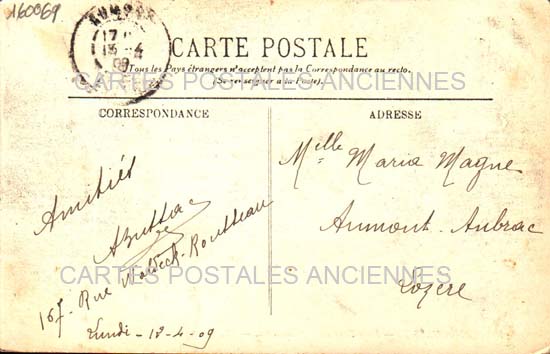 160069
17
09
CARTE POSTALE
Tous les Pays étrangers n'acceptent pas la Correspondance au recto.
(Se renseigner à la Poste).
CARTES POSTALES ANCIENNES
CORRESPONDANCE
ADRESSE
Amitiés
167 - Rue Waldeck-Rousseau
Lundi - 12-4-09
Mlle Maria Magne
Aumont-Aubrac
Lozère
CARTES POSTALES ANCIENNES